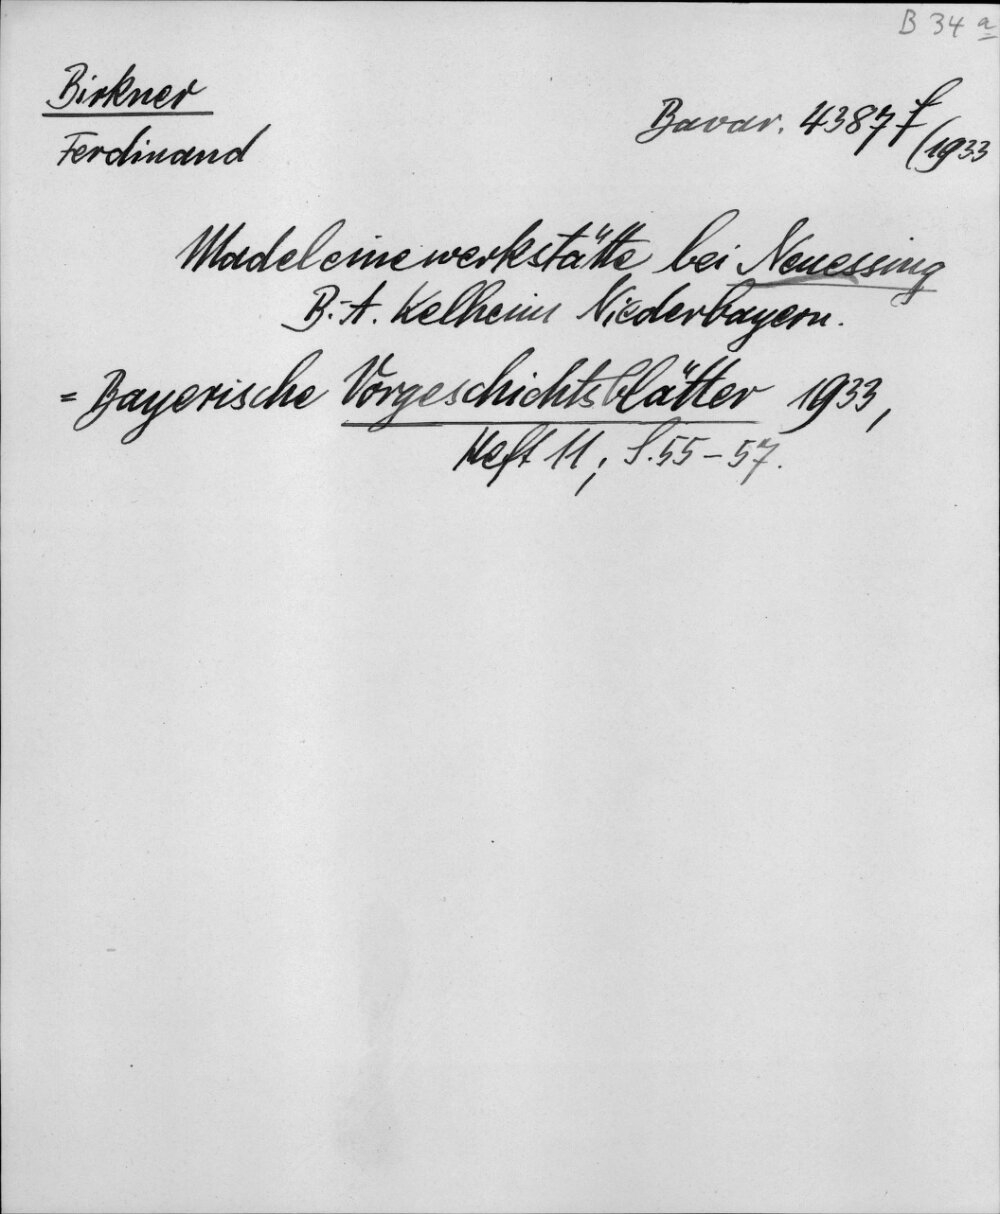 B 34 a
Birkner
Ferdinand
Bavar. 4387 f
(1933
Madeleinewerkstätte bei Neuessing
B.-A. Kelheim Niederbayern.
= Bayerische Vorgeschichtsblätter 1933,
Heft 11, S. 55-57.